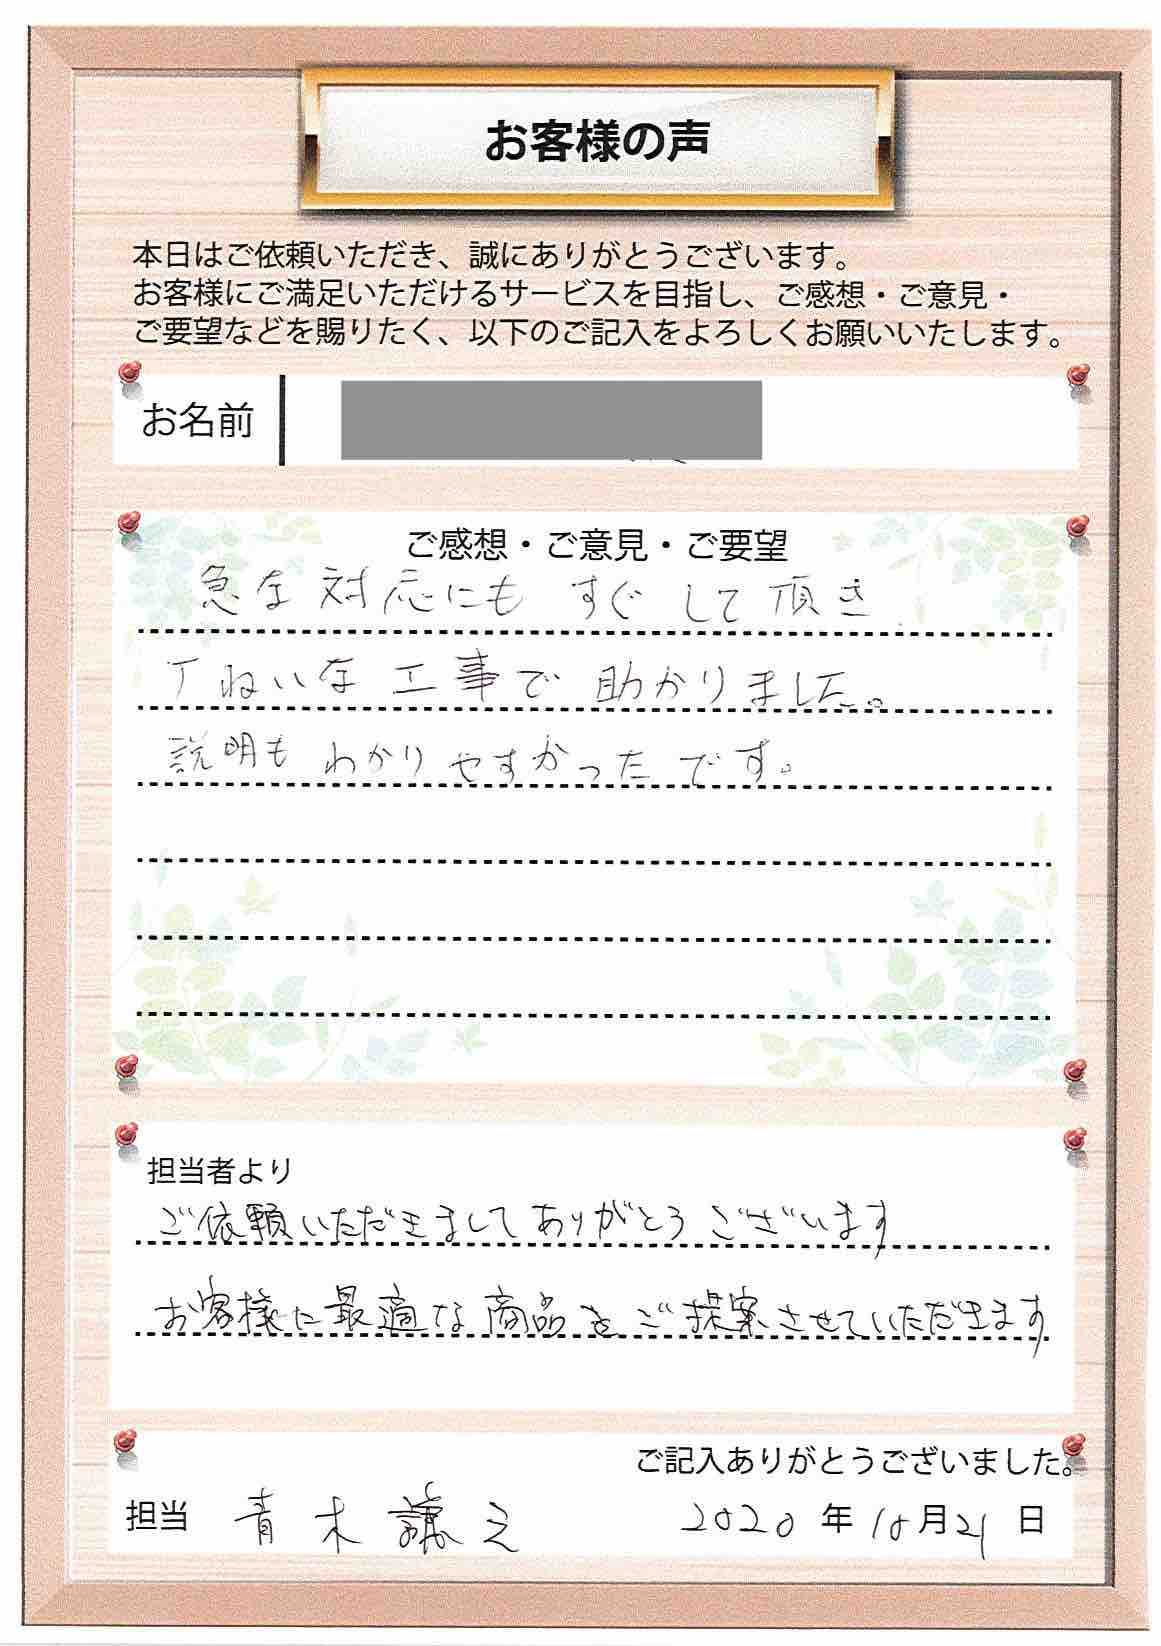 お客様の声
本日はご依頼いただき、誠にありがとうございます。
お客様にご満足いただけるサービスを目指し、ご感想・ご意見・
ご要望などを賜りたく、以下のご記入をよろしくお願いいたします。
お名前
ご感想・ご意見・ご要望
急な対応にもすぐして頂き
丁ねいな工事で助かりました。
説明もわかりやすかったです。
担当者より
ご依頼いただきましてありがとうございます
お客様に最適な商品をご提案させていただきます
ご記入ありがとうございました。
担当 青木謙之 2020年10月21日